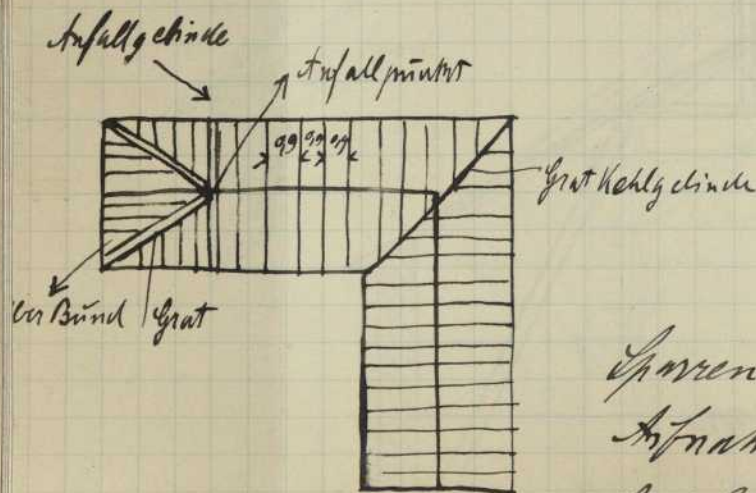 Anfallgebinde
Anfallpunkt
0,9 0,9 0,9
Grat Kehlgebinde
Bund Grat
Sparren